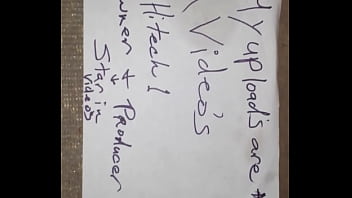 MY uploads are
Video's
Hitech1
wner + Producer
Star in
videos